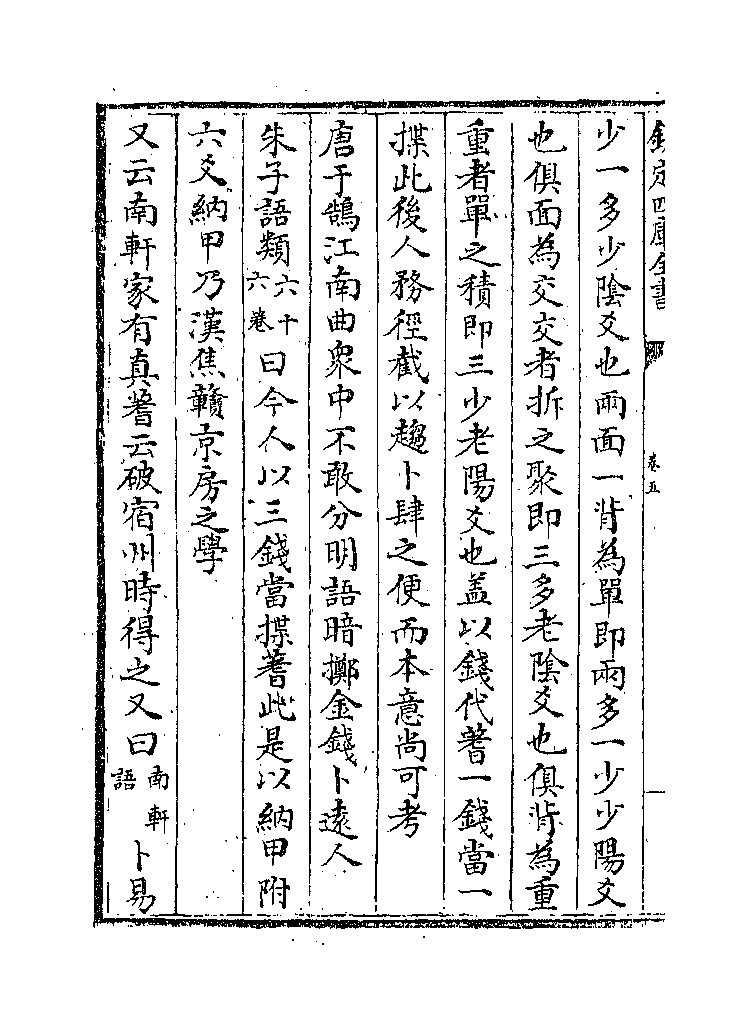 欽定四庫全書
卷五
少一多少陰爻也兩面一背為單即兩多一少少陽爻
也俱面為交交者拆之聚即三多老陰爻也俱背為重
重者單之積即三少老陽爻也盖以錢代蓍一錢當一
揲此後人務徑截以趨卜肆之便而本意尚可考
唐于鵠江南曲衆中不敢分明語暗擲金錢卜逺人
朱子語類六十六卷曰今人以三錢當揲蓍此是以納甲附
六爻納甲乃漢焦贛京房之學
又云南軒家有真蓍云破宿州時得之又曰南軒語卜易